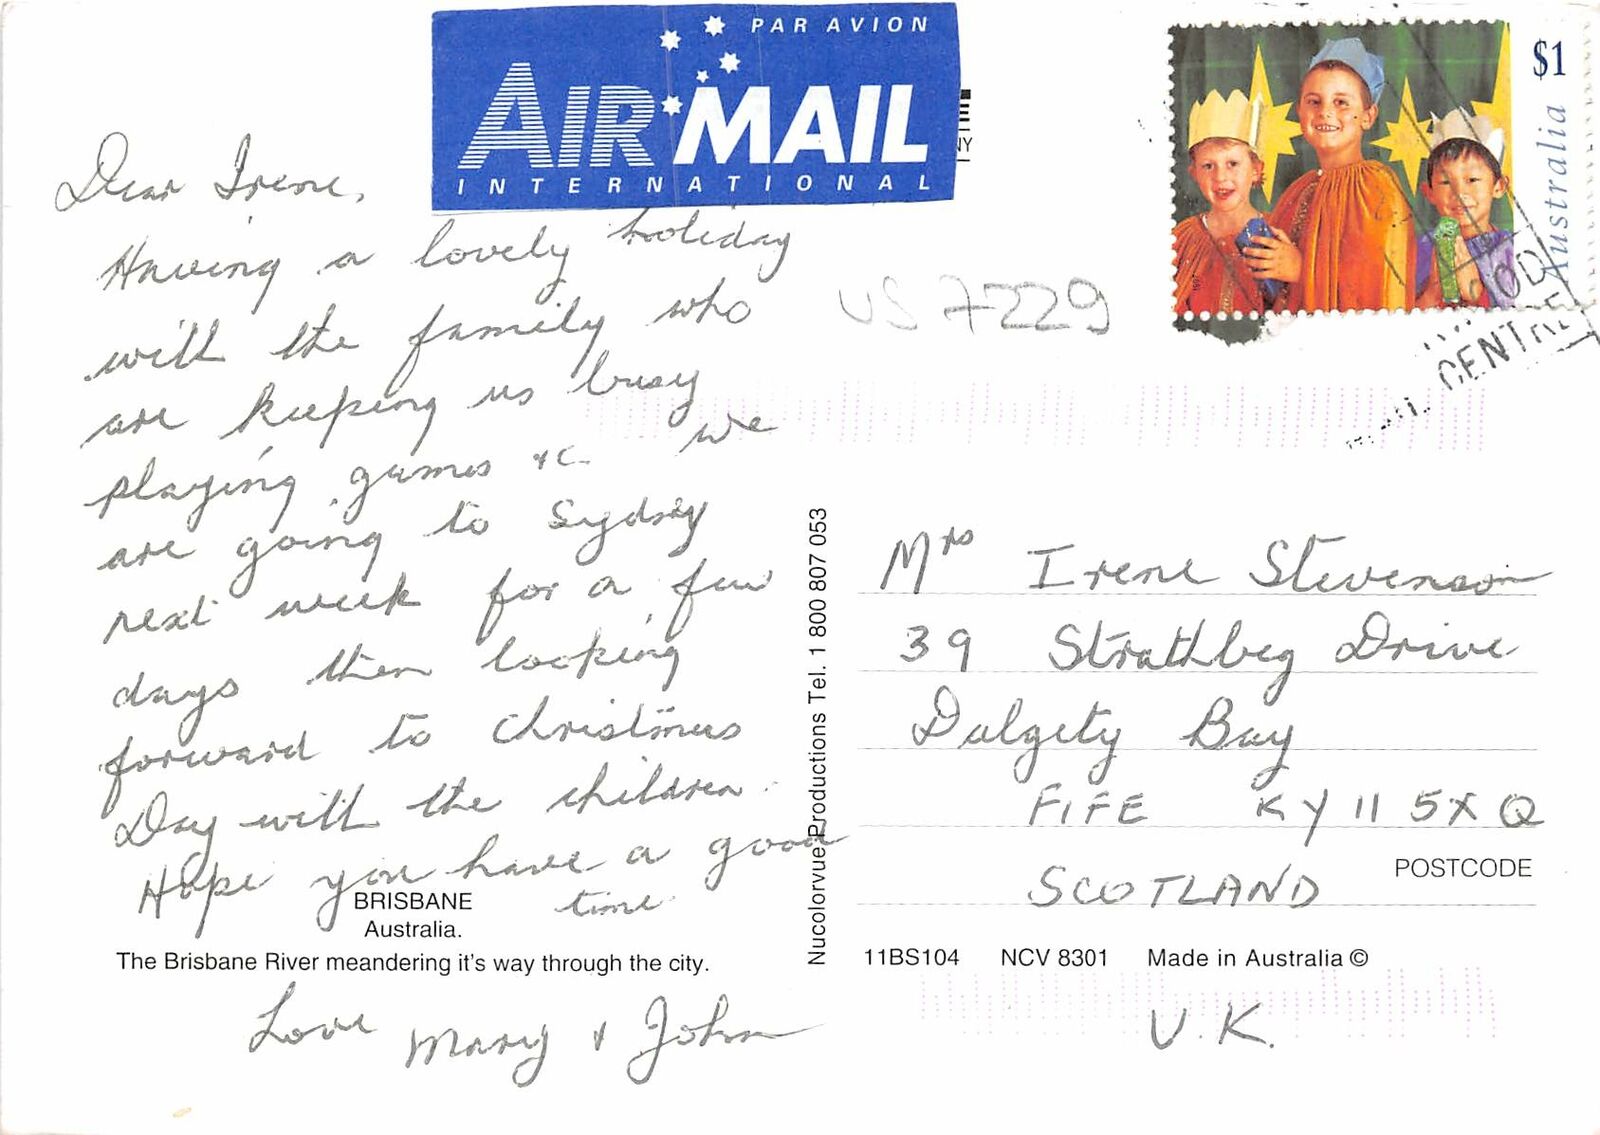 PAR AVION
AIR MAIL
INTERNATIONAL
$1
Australia
CENTRE
Dear Irene,
Having a lovely holiday
with the family who
are keeping us busy
playing games &c. we
are going to Sydney
next week for a few
days then looking
forward to Christmas
Day with the children.
Hope you have a good
time
BRISBANE
Australia.
The Brisbane River meandering it's way through the city.
Love Mary & John
Nucolorvue Productions Tel. 1 800 807 053
US 7229
Mrs Irene Stevenson
39 Strathbeg Drive
Dalgety Bay
FIFE KY11 5XQ
POSTCODE
SCOTLAND
11BS104 NCV 8301 Made in Australia ©
U.K.